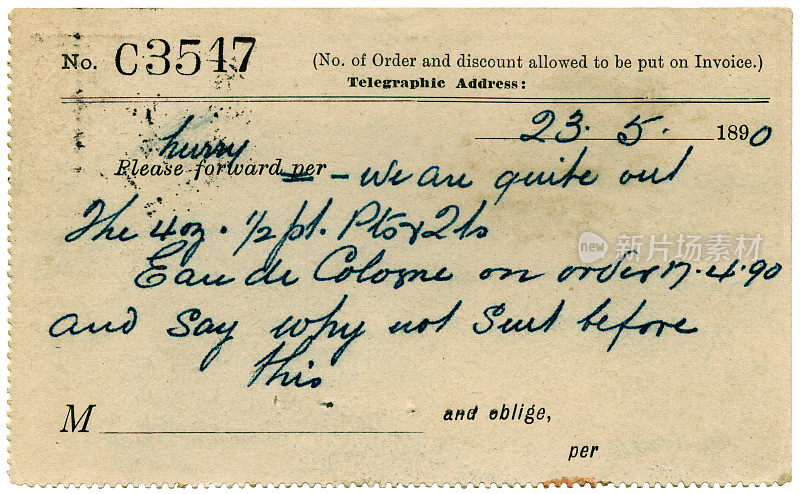 No. C3547 (No. of Order and discount allowed to be put on Invoice.)
Telegraphic Address:
23. 5. 1890
hurry
Please forward per - We are quite out
The 4 oz. 1/2 pt. Pts & Qts
Eau de Cologne on order 17.4.90
and say why not sent before
this
M and oblige,
per
new 站酷海洛 PLUS SUIT